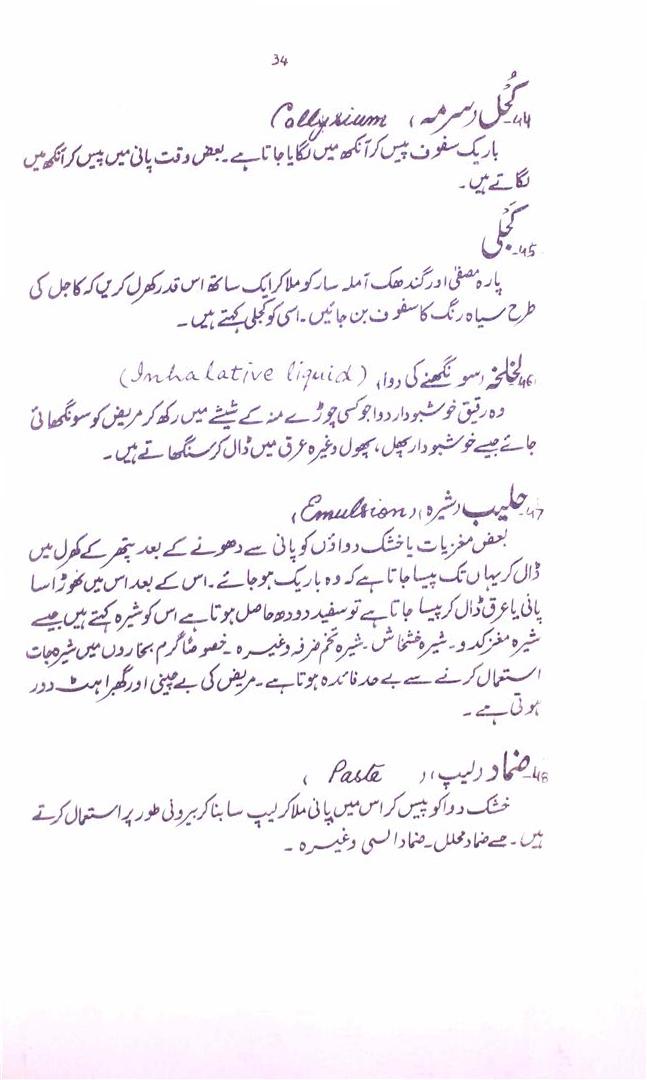 34
44- کُحُل (سرمہ) Collyrium
باریک سفوف پیس کر آنکھ میں لگایا جاتا ہے۔ بعض وقت پانی میں پیس کر آنکھ میں
لگاتے ہیں۔
45- کَجْلی
پارہ مصفٰی اور گندھک آملہ سار کو ملا کر ایک ساتھ اس قدر کھرل کریں کہ کاجل کی
طرح سیاہ رنگ کا سفوف بن جائیں۔ اسی کو کجلی کہتے ہیں۔
46- لخلخہ (سونگھنے کی دوا) (Inhalative liquid)
وہ رقیق خوشبودار دوا جو کسی چوڑے منہ کے شیشے میں رکھ کر مریض کو سونگھائی
جائے جیسے خوشبودار پھل، پھول وغیرہ عرق میں ڈال کر سنگھاتے ہیں۔
47- حلیب (شیرہ) (Emulsion)
بعض مغزیات یا خشک دواؤں کو پانی سے دھونے کے بعد پتھر کے کھرل میں
ڈال کر یہاں تک پیسا جاتا ہے کہ وہ باریک ہو جائے۔ اس کے بعد اس میں تھوڑا سا
پانی یا عرق ڈال کر پیسا جاتا ہے تو سفید دودھ حاصل ہوتا ہے اس کو شیرہ کہتے ہیں جیسے
شیرہ مغز کدو۔ شیرہ خشخاش۔ شیرہ تخم خرفہ وغیرہ۔ خصوصًا گرم بخاروں میں شیرہ جات
استعمال کرنے سے بے حد فائدہ ہوتا ہے۔ مریض کی بے چینی اور گھبراہٹ دور
ہوتی ہے۔
48- ضماد (لیپ) ( Paste )
خشک دوا کو پیس کر اس میں پانی ملا کر لیپ سا بنا کر بیرونی طور پر استعمال کرتے
ہیں۔ جسے ضماد محلل۔ ضماد السی وغیرہ۔